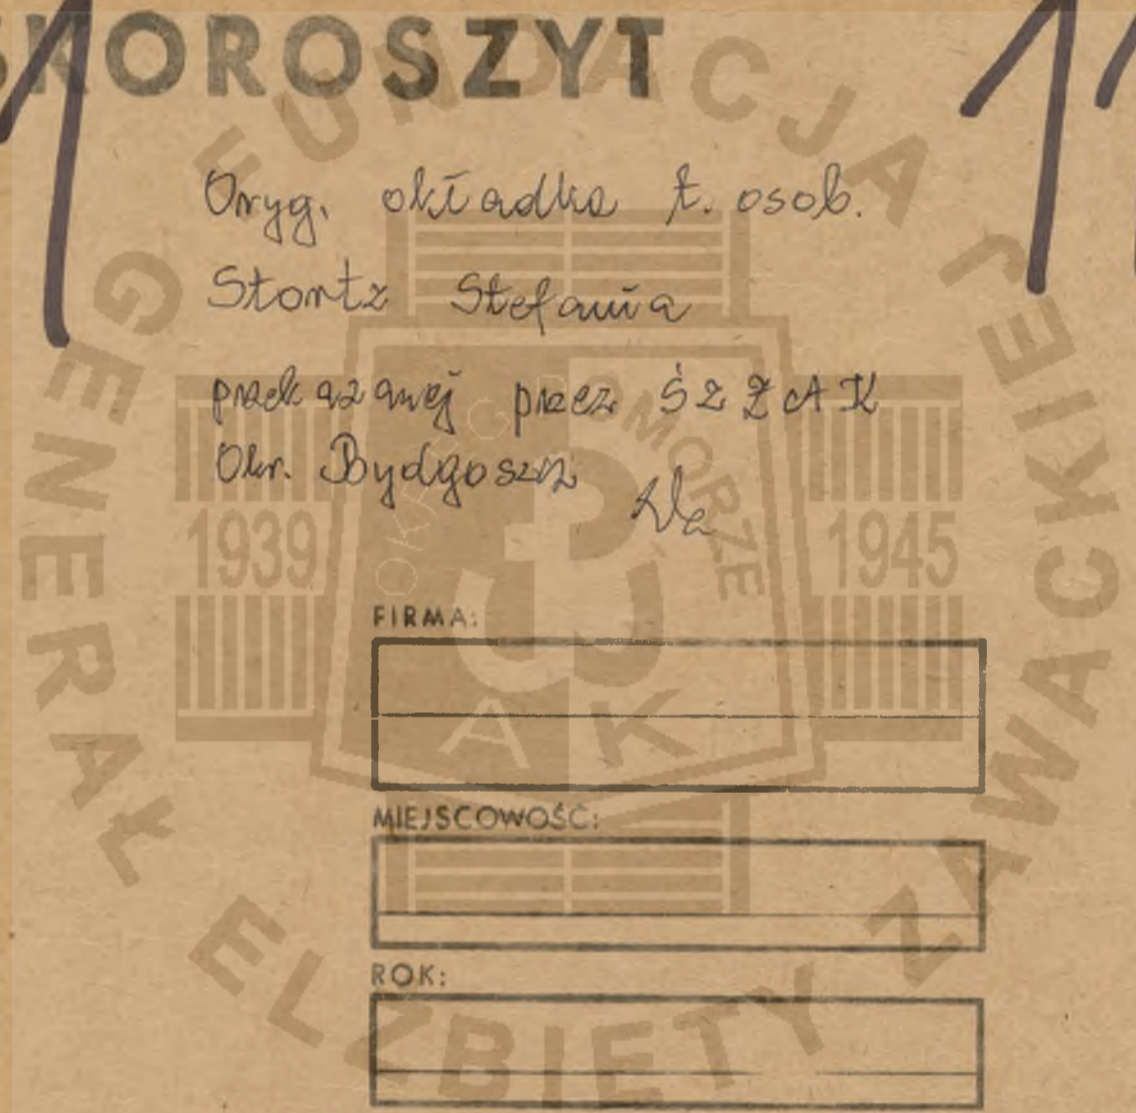 SKOROSZYT
1 11
Oryg. okładka t. osob.
Stortz Stefania
przekazanej przez ŚZŻAK
Okr. Bydgoszcz
FIRMA:
MIEJSCOWOŚĆ:
ROK:
FUNDACJA GENERAŁ ELŻBIETY ZAWACKIEJ
OKRĘG POMORZE
1939 1945
AK